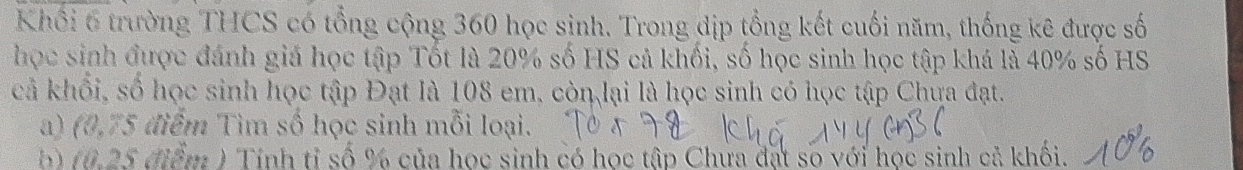 Khối 6 trường THCS có tổng cộng 360 học sinh. Trong dịp tổng kết cuối năm, thống kê được số
học sinh được đánh giá học tập Tốt là 20% số HS cả khối, số học sinh học tập khá là 40% số HS
cả khối, số học sinh học tập Đạt là 108 em, còn lại là học sinh có học tập Chưa đạt.
a) (0,75 điểm Tìm số học sinh mỗi loại. Khá 144
b) (0,25 điểm ) Tính tỉ số % của học sinh có học tập Chưa đạt so với học sinh cả khối. 10%